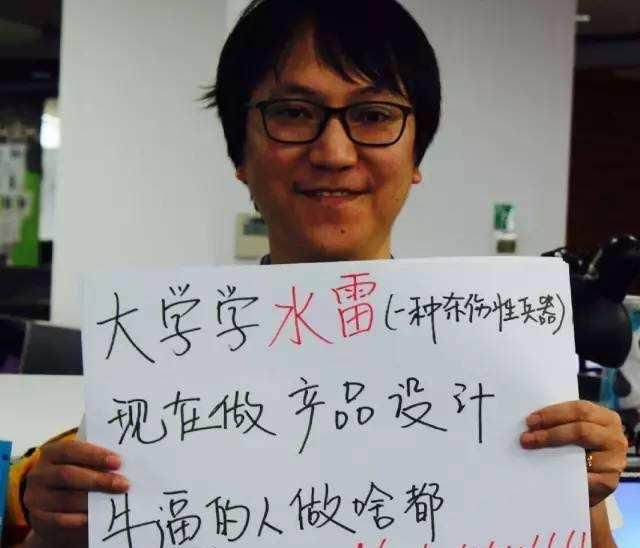 大学学水雷(一种杀伤性兵器)
现在做产品设计
牛逼的人做啥都